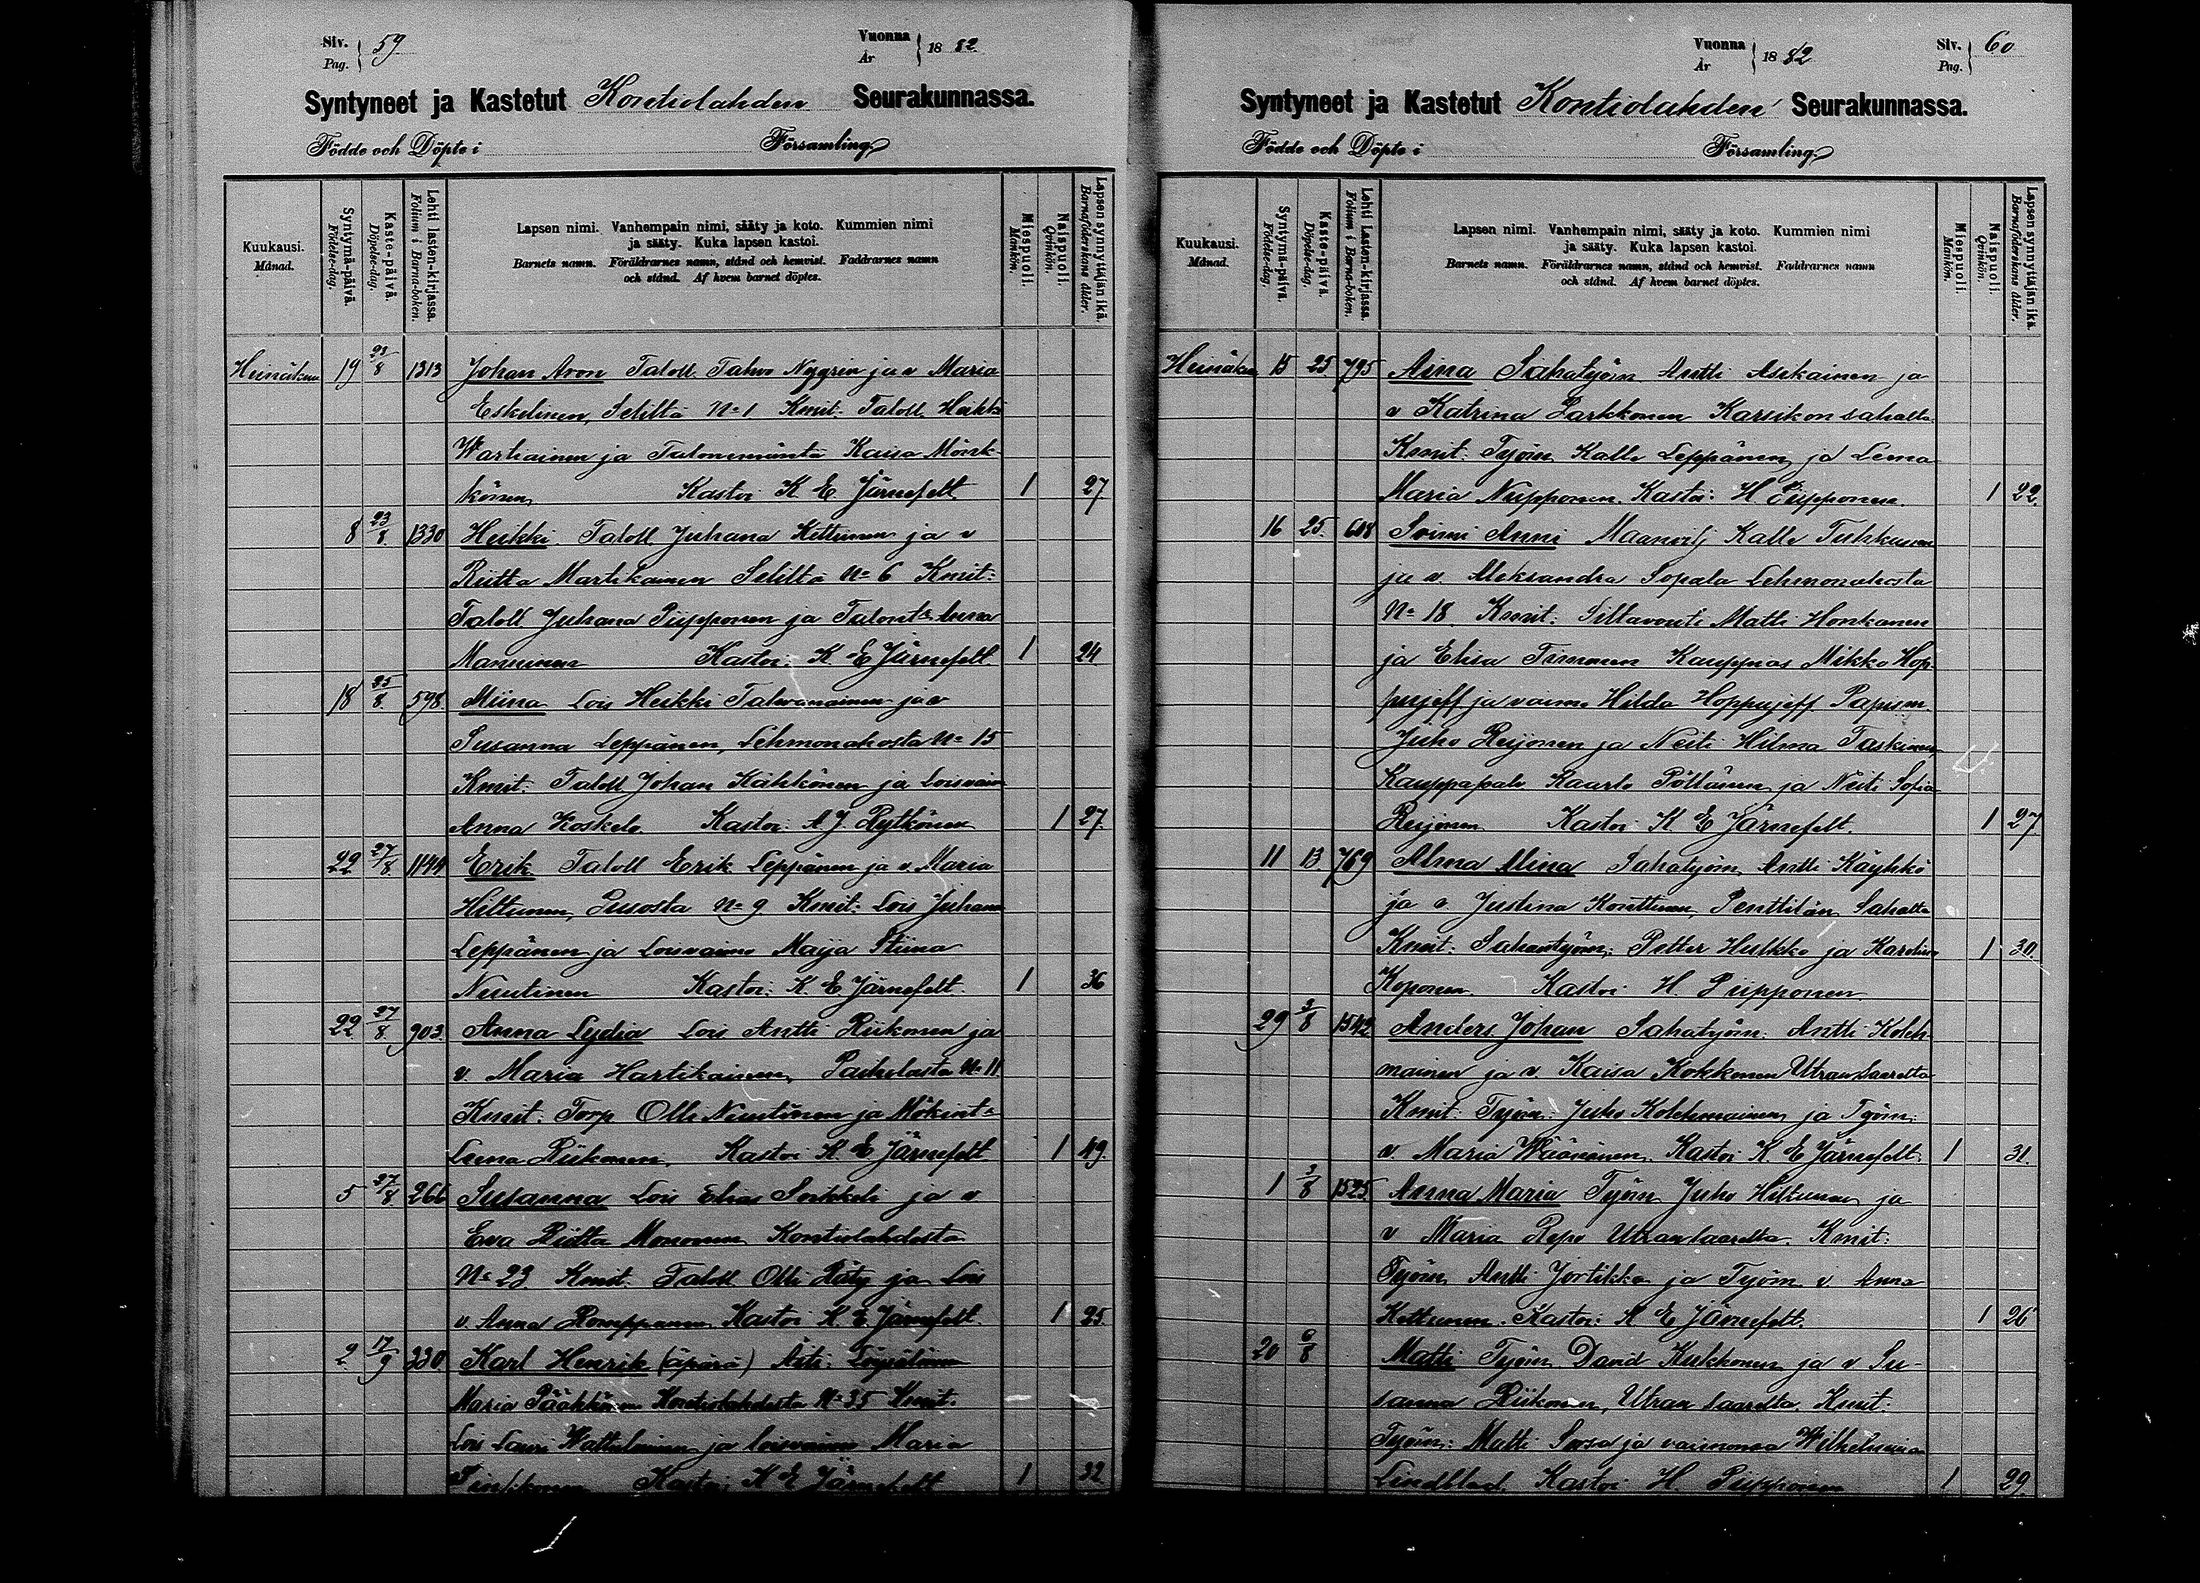 Siv. 59 Vuonna 1882.
Pag. År
Syntyneet ja Kastetut Kontiolahden Seurakunnassa.
Födde och Döpte i Församling
Kuukausi. Månad.
Syntymä-päivä. Födelse-dag.
Kaste-päivä. Döpelse-dag.
Lehti lasten-kirjassa. Folium i Barna-boken.
Lapsen nimi. Vanhempain nimi, sääty ja koto. Kummien nimi
ja sääty. Kuka lapsen kastoi.
Barnets namn. Föräldrarnes namn, stånd och hemvist. Faddrarnes namn
och stånd. Af hvem barnet döptes.
Miespuoli. Mankön.
Naispuoli. Qvinkön.
Lapsen synnyttäjän ikä. Barnaföderskans ålder.
Heinäkuu 19 23/8 1313 Johan Aron Taloll. Tahvo Nygrén ja v Maria
Eskelinen, Seliltä No 1 Kmit: Taloll Heikki
Wartiainen ja Talonemäntä Kaisa Mönk-
könen Kastoi K E Järnefelt 1 27
8 23/8. 1330 Heikki Taloll Juhana Kettunen ja v
Riitta Martikainen Seliltä No 6 Kmit:
Taloll Juhana Piipponen ja Talont: Anna
Manninen Kastoi: K E Järnefelt 1 24
18 25/8. 598 Miina Lois Heikki Talvanainen ja v
Susanna Leppänen, Lehmonahosta No 15
Kmit: Taloll Johan Kähkönen ja Loisvaim
Anna Koskelo Kastoi: A J. Rytkönen 1 27.
22 27/8 1144 Erik Taloll Erik Leppänen ja v. Maria
Hiltunen, Pusosta No 9 Kmit: Lois Juhana
Leppänen ja Loisvaimo Maija Stiina
Nuutinen Kastoi: K. E Järnefelt. 1 36
22 27/8. 903. Anna Lydia Lois Antti Riikonen ja
v. Maria Hartikainen, Paiholasta No 11.
Kmit. Torp Olli Nuutinen ja Mökint:
Leena Riikonen. Kastoi K E Järnefelt 1 49.
5 27/8. 266 Susanna Lois Elias Sorkkeli ja v
Eva Riitta Mononen Kontiolahdesta
No 23 Kmit. Taloll Olli Räty ja Lois
v. Anna Romppanen Kastoi K. E. Järnefelt. 1 25.
2 17/9 330 Karl Henrik (äpärä) Äiti:
Maria Pääkkönen Kontiolahdesta No 35 Kmit.
Lois Lauri ja loisvaimo Maria
Kastoi K E Järnefelt 1 32
Vuonna 1882 Siv. 60
År Pag.
Syntyneet ja Kastetut Kontiolahden Seurakunnassa.
Födde och Döpte i Församling.
Kuukausi. Månad.
Syntymä-päivä. Födelse-dag.
Kaste-päivä. Döpelse-dag.
Lehti Lasten-kirjassa. Folium i Barna-boken.
Lapsen nimi. Vanhempain nimi, sääty ja koto. Kummien nimi
ja sääty. Kuka lapsen kastoi.
Barnets namn. Föräldrarnes namn, stånd och hemvist. Faddrarnes namn
och stånd. Af hvem barnet döptes.
Miespuoli. Mankön.
Naispuoli. Qvinkön.
Lapsen synnyttäjän ikä. Barnaföderskans ålder.
Heinäku 15 25 795 Aina Sahatyöm Antti Asikainen ja
v Katrina Parkkonen Karsikon sahalta.
Kmit: Työm Kalle Leppänen ja Leena
Maria Nupponen. Kastoi: H Piipponen. 1 22.
16 25. 608 Soimi Anni Maanvilj Kalle Tuhkunen
ja v. Aleksandra Sopala Lehmonahosta
No 18. Kmit: Siltavouti Matti Honkanen
ja Elisa Timonen Kauppias Mikko Hop-
pujeff ja vaimo Hilda Hoppujeff. Papism.
Juho Reijonen ja Neiti Hilma Taskinen
Kauppapalv Kaarlo Pöllänen ja Neiti Sofia
Reijonen Kastoi K E Järnefelt. 1 27
11 13 769 Alma Alina Sahatyöm, Antti Käyhkö
ja v. Justina Konttinen, Penttilän Sahalta
Kmit: Sahantyöm: Petter Hulkko ja Karolina 1 30.
Koponen. Kastoi H. Piipponen
29 3/8 1542 Anders Johan Sahatyöm. Antti Koleh-
mainen ja v. Kaisa Kokkonen Utran Saarelta
Kmit: Työm: Juho Kolehmainen ja Työm:
v. Maria Väänänen. Kastoi K. E Järnefelt. 1 31.
1 3/8 1525 Anna Maria Työm Juho Hiltunen ja
v Maria Repo Utran saarelta. Kmit:
Työm Antti Jortikka ja Työm v Anna
Kettunen. Kastoi: K E Järnefelt. 1 26
20 6/8 Matti Työm. David Kukkonen ja v Su-
sanna Riikonen, Utran saarelta. Kmit:
Työm: Matti Sorsa ja vaimonsa Wilhelmina
Lindblad. Kastoi H Piipponen 1 29.